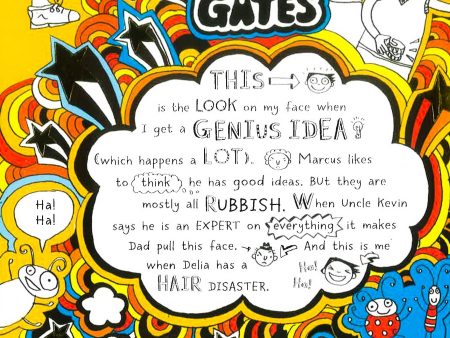 GATES
THIS
is the LOOK on my face when
I get a GENIUS IDEA!
(which happens a LOT). Marcus likes
to think he has good ideas. BUT they are
mostly all RUBBISH. When Uncle Kevin
says he is an EXPERT on everything it makes
Dad pull this face. And this is me
when Delia has a Ho!
HAIR DISASTER. Ho!
Ha!
Ha!